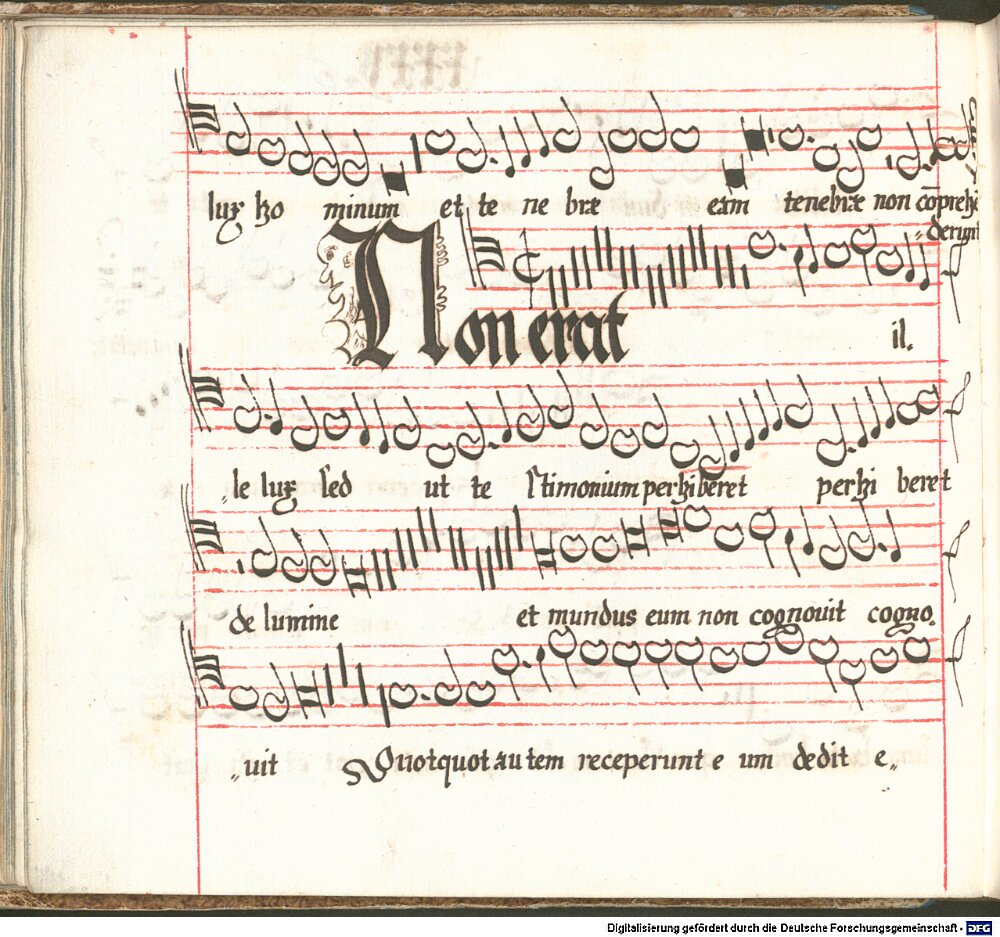 lux ho minum et te ne bræ eam tenebræ non cōprehē
„derunt
Non erat il.
„le lux sed ut te stimonium perhiberet perhi beret
de lumine et mundus eum non cognouit cogno.
„uit Quotquot autem receperunt e um dedit e„
Digitalisierung gefördert durch die Deutsche Forschungsgemeinschaft - DFG